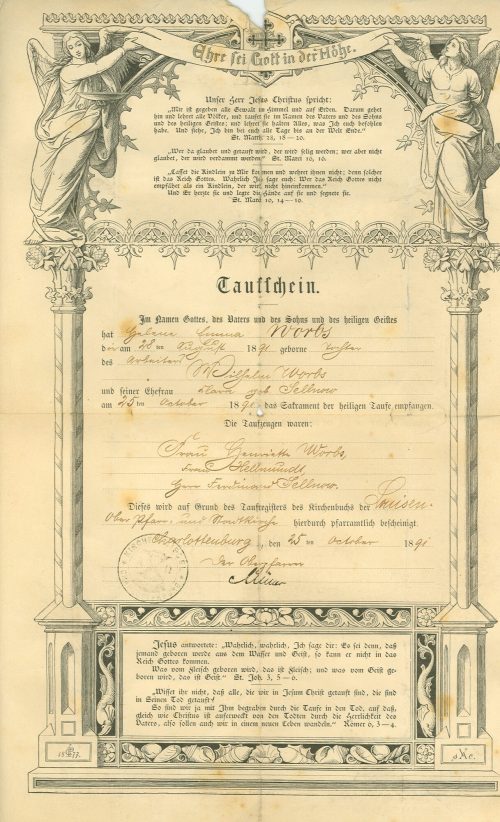 Ehre sei Gott in der Höhe.
Unser Herr Jesus Christus spricht:
„Mir ist gegeben alle Gewalt in Himmel und auf Erden. Darum gehet
hin und lehret alle Völker, und taufet sie im Namen des Vaters und des Sohns
und des heiligen Geistes; und lehret sie halten Alles, was Ich euch befohlen
habe. Und siehe, Ich bin bei euch alle Tage bis an der Welt Ende.“
St. Matth. 28, 18—20.
„Wer da glaubet und getauft wird, der wird selig werden; wer aber nicht
glaubet, der wird verdammt werden.“ St. Marci 16, 16.
„Lasset die Kindlein zu Mir kommen und wehret ihnen nicht; denn solcher
ist das Reich Gottes. Wahrlich Ich sage euch: Wer das Reich Gottes nicht
empfähet als ein Kindlein, der wird nicht hineinkommen.“
Und Er herzte sie und legte die Hände auf sie und segnete sie.
St. Marci 10, 14—16.
Taufschein.
Im Namen Gottes, des Vaters und des Sohns und des heiligen Geistes
hat Helene Emma Worbs
die am 28 ten August 1891 geborne Tochter
des Arbeiters
Wilhelm Worbs
und seiner Ehefrau Klara geb. Sellnow
am 25 ten October 1891 das Sakrament der heiligen Taufe empfangen.
Die Taufzeugen waren:
Frau Henriette Worbs,
Frau Hellmundt,
Herr Ferdinand Sellnow.
Dieses wird auf Grund des Taufregisters des Kirchenbuchs der Luisen-
Ober Pfarr- und Stadtkirche hierdurch pfarramtlich bescheinigt.
Charlottenburg, den 25 ten October 1891
Der Oberpfarrer
Jesus antwortete: „Wahrlich, wahrlich, Ich sage dir: Es sei denn, daß
jemand geboren werde aus dem Wasser und Geist, so kann er nicht in das
Reich Gottes kommen.
Was vom Fleisch geboren wird, das ist Fleisch; und was vom Geist ge-
boren wird, das ist Geist.“ St. Joh. 3, 5—6.
„Wisset ihr nicht, daß alle, die wir in Jesum Christ getauft sind, die sind
in Seinen Tod getauft?
So sind wir ja mit Ihm begraben durch die Taufe in den Tod, auf daß,
gleich wie Christus ist auferweckt von den Todten durch die Herrlichkeit des
Vaters, also sollen auch wir in einem neuen Leben wandeln.“ Römer 6, 3—4.
1877.